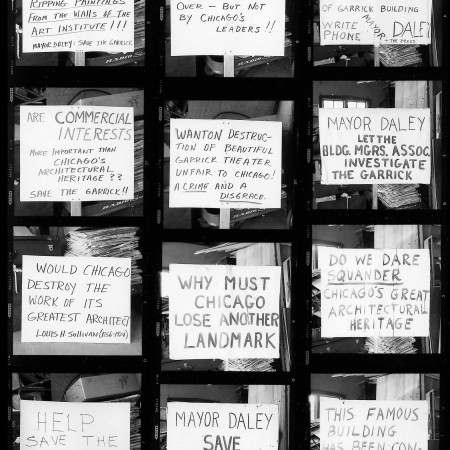 RIPPING PAINTINGS
FROM THE WALLS OF THE
ART INSTITUTE!!!
MAYOR DALEY: SAVE THE GARRICK
OVER - BUT NOT
BY CHICAGO'S
LEADERS!!
OF GARRICK BUILDING
WRITE MAYOR DALEY
PHONE + THE PRESS
ARE COMMERCIAL
INTERESTS
MORE IMPORTANT THAN
CHICAGO'S
ARCHITECTURAL
HERITAGE??
SAVE THE GARRICK!!
WANTON DESTRUC-
TION OF BEAUTIFUL
GARRICK THEATER
UNFAIR TO CHICAGO!
A CRIME AND A
DISGRACE.
MAYOR DALEY
LET THE
BLDG. MGRS. ASSOC.
INVESTIGATE
THE GARRICK
WOULD CHICAGO
DESTROY THE
WORK OF ITS
GREATEST ARCHITECT
LOUIS H. SULLIVAN (1856-1924)
WHY MUST
CHICAGO
LOSE ANOTHER
LANDMARK
DO WE DARE
SQUANDER
CHICAGO'S GREAT
ARCHITECTURAL
HERITAGE
HELP
SAVE THE
MAYOR DALEY
SAVE
THIS FAMOUS
BUILDING
HAS BEEN CON-